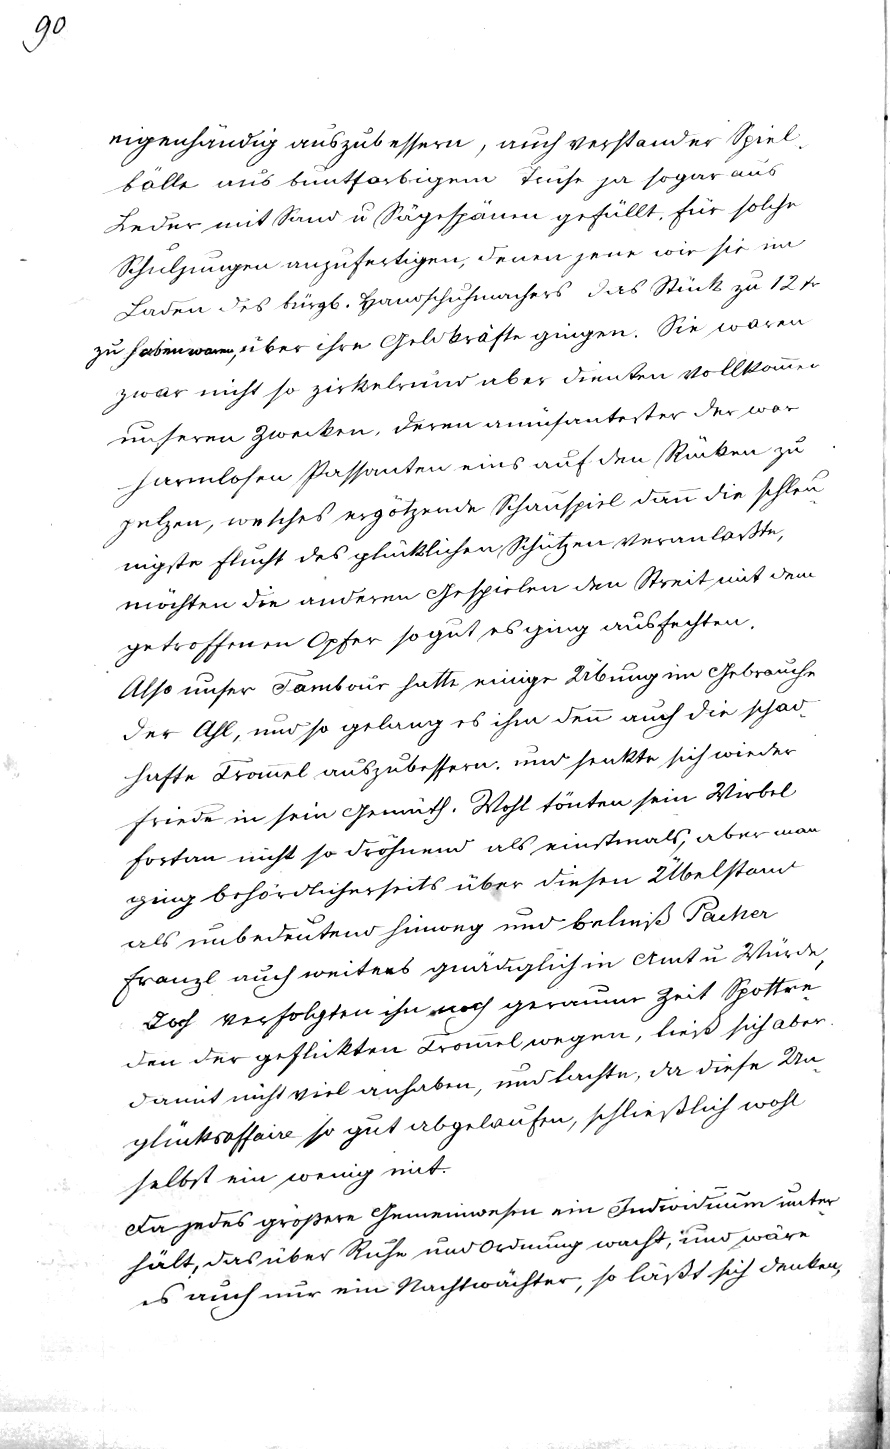 90
eigenhändig auszubessern, auch verstand er Spiel-
bälle aus buntfarbigem Tuche ja sogar aus
Leder mit Sand u Sägespänen gefüllt, für solche
Schuljungen anzufertigen, denen jene wie sie im
Laden des bürgl. Handschuhmachers das Stück zu 12 kr
zu haben waren, über ihre Geldkräfte gingen. Sie waren
zwar nicht so zirkelrund aber dienten vollkom̄en
unseren Zwecken, deren amüsantester der war
harmlosen Passanten eins auf den Rücken zu
pelzen, welches ergötzende Schauspiel dan̄ die schleu-
nigste Flucht des glücklichen Schützen veranlaßte,
möchten die anderen Gespielen den Streit mit dem
getroffenen Opfer so gut es ging ausfechten.
Also unser Tambour hatte einige Übung im Gebrauche
der Ahl, und so gelang es ihm den̄ auch die schad-
hafte Trom̄el auszubessern. und senkte sich wieder
Friede in sein Gemüth. Wohl tönten sein Wirbel
fortan nicht so dröhnend als einstmals, aber man
ging behördlicherseits über diesen Übelstand
als unbedeutend hinweg und beließ Pacher
Franzl auch weiters gnädiglich in Amt u Würde,
Doch verfolgten ihn noch geraume Zeit Spottre-
den der geflickten Trom̄el wegen, ließ sich aber
damit nicht viel anhaben, und lachte, da diese Un-
glücksaffaire so gut abgelaufen, schließlich wohl
selbst ein wenig mit.
Da jedes größere Gemeinwesen ein Individuum unter-
hält, das über Ruhe und Ordnung wacht, und wäre
es auch nur ein Nachtwächter, so läßt sich denken,